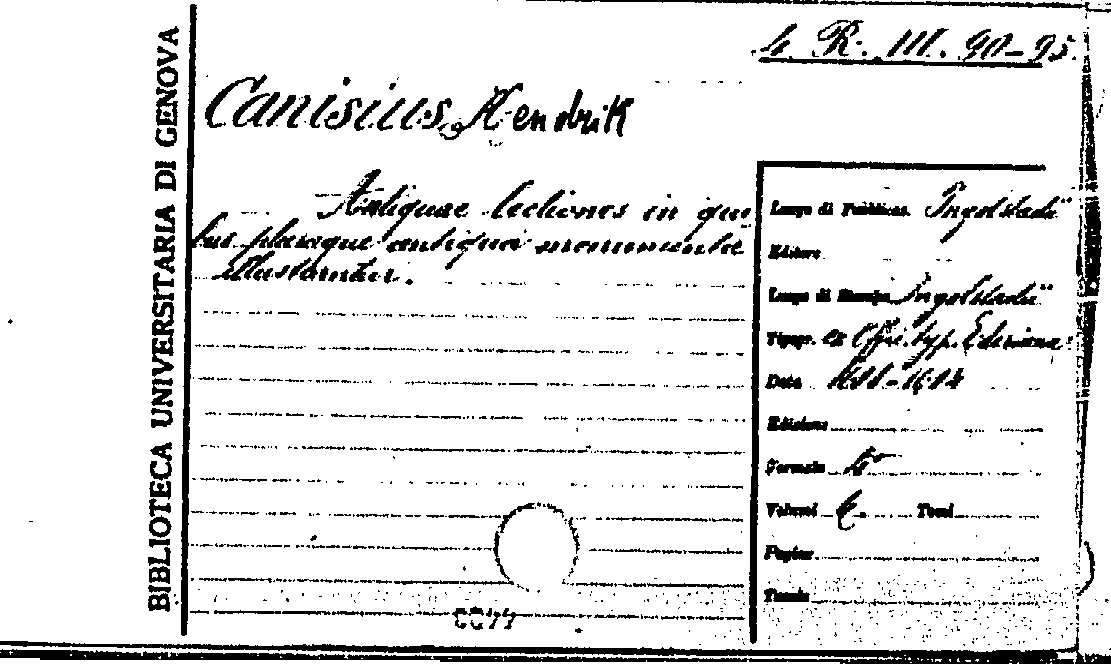 BIBLIOTECA UNIVERSITARIA DI GENOVA
4. R. III. 90-95.
Canisius, Hendrik
Antiquae lectiones in qui
bus pleraque antiqua monumenta
illustrantur.
Luogo di Pubblicaz. Ingolstadii
Editore
Luogo di Stampa Ingolstadii
Tipogr. ex Offi. typ. Ederiana
Data 1601-1604
Edizione
Formato 4°
Volumi 6. Tomi
Pagine
Tavole